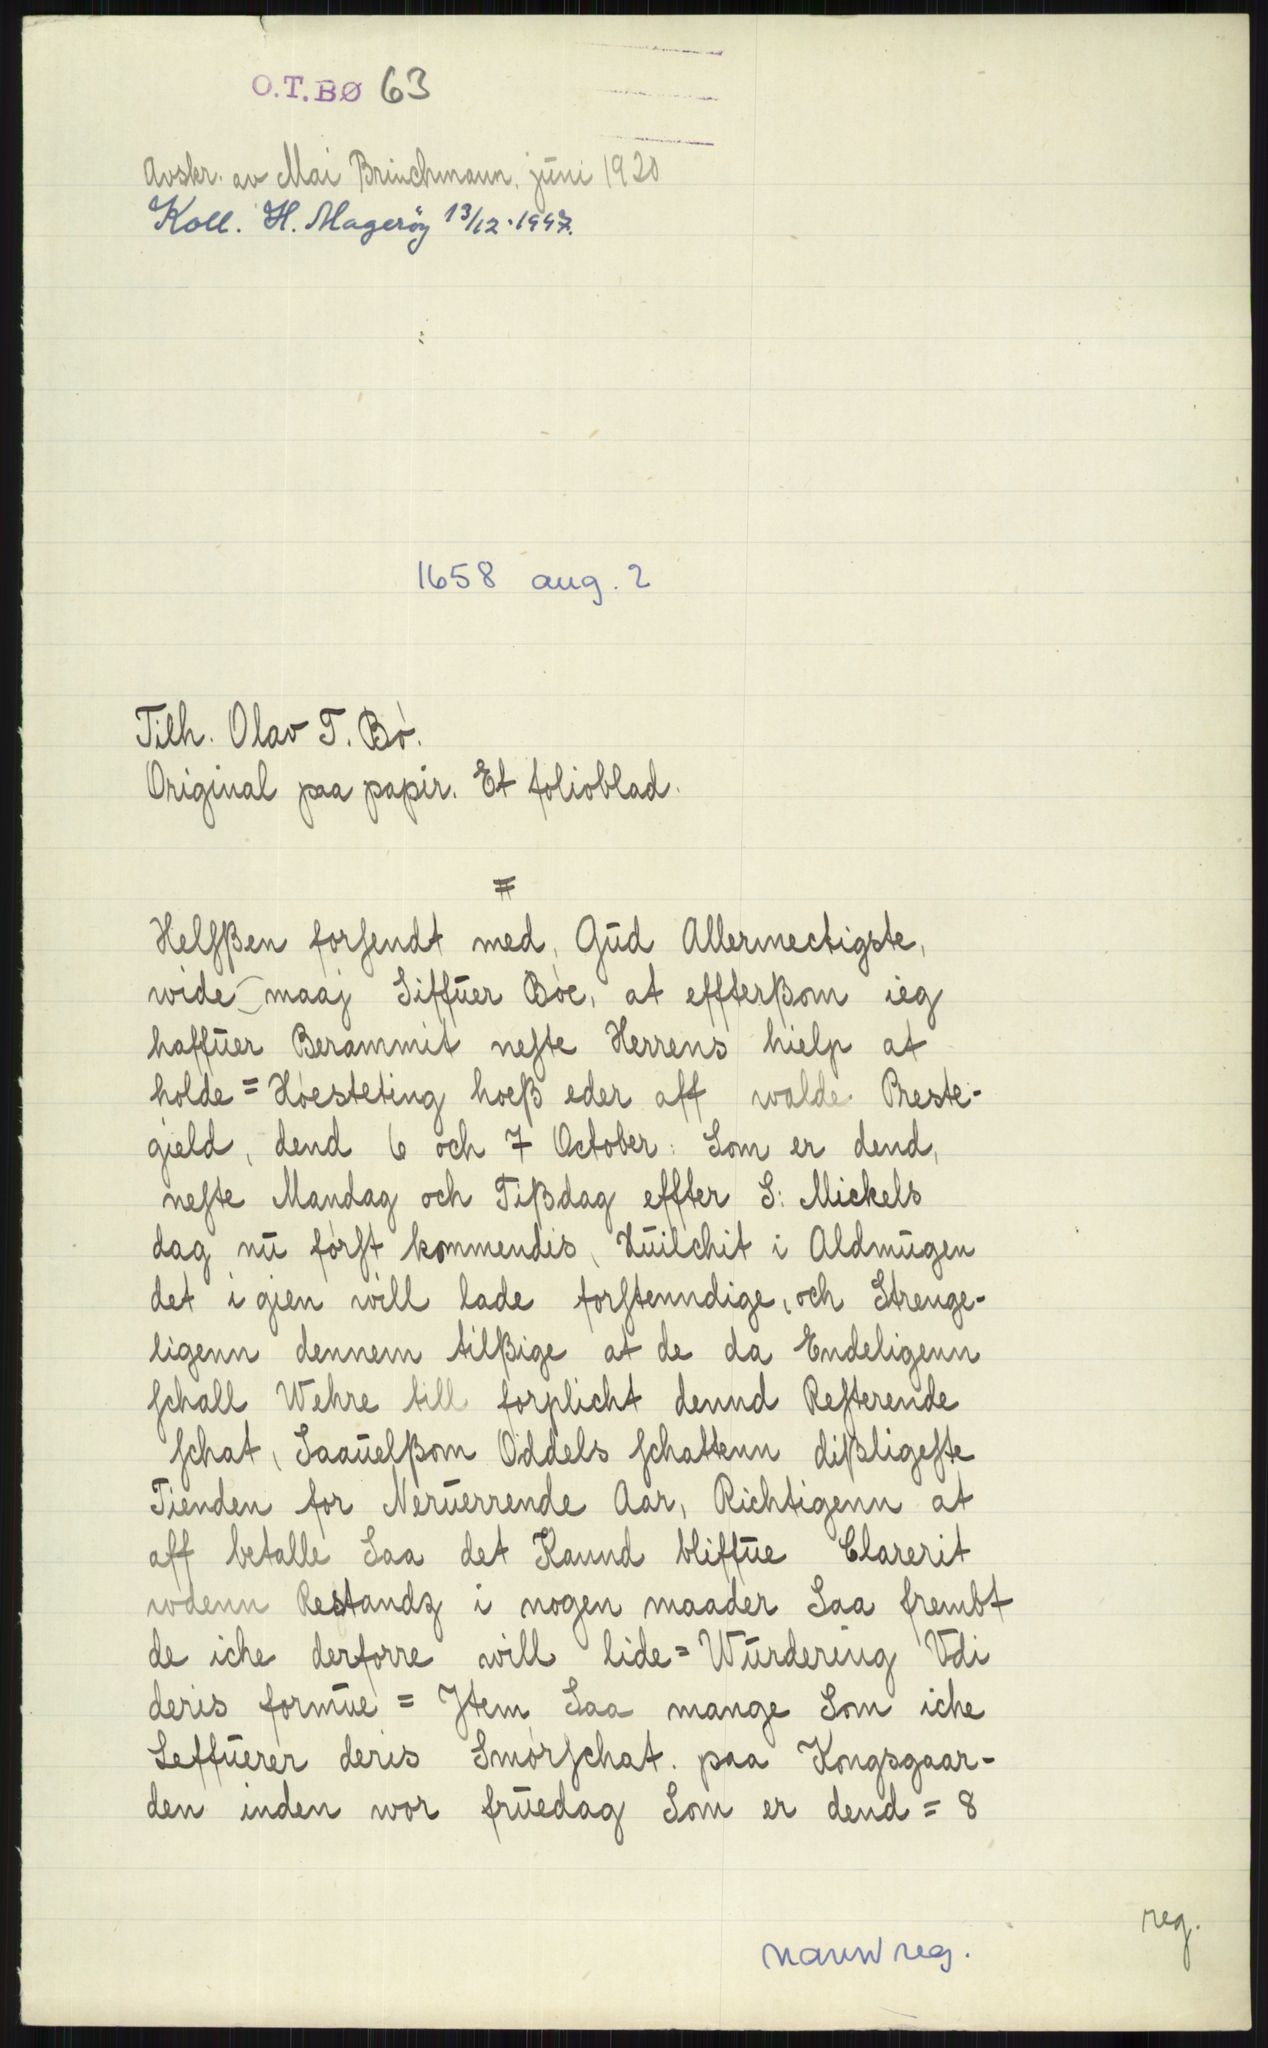 O.T.BØ 63
Avskr. av Mai Brinchmann, juni 1920
Koll. H. Magerøy 13/12.1947.
1658 aug. 2
Tilh. Olav T. Bø.
Original paa papir. Et folioblad.
=
Helſßen forſendt med, Gud Allermectigste,
wide maaj Siffuer Bøe, at effterßom ieg
haffuer Berammit neſte Herrens hielp at
holde = Høesteting hoeß eder aff walde Preste-
gield, dend 6 och 7 October: Som er dend,
neſte Mandag och Tißdag effter S: Mickels
dag nu førſt kommendis, Huilchit i Aldmugen
det i gien will lade forſtenndige, och Strenge-
ligenn dennem tilßige at de da Endeligenn
ſchall Wehre till forplicht dennd Reſterende
ſchat, Saauelßom Oddels ſchattenn dißligeſte
Tienden for Neruerrende Aar, Richtigenn at
aff betalle Saa det Kannd bliffue Clarerit
wdenn Restandz i nogen maader Saa frembt
de iche derforre will lide = Wurdering Vdi
deris formue = Jtem Saa mange Som iche
Leffuerer deris Smørſchat. paa Kongsgaar-
den inden wor fruedag Som er dend = 8
reg.
navnreg.